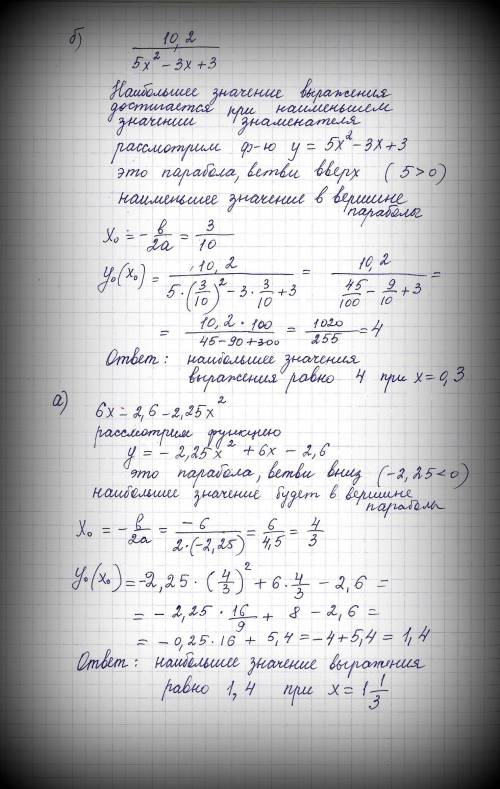 б) 10,2 / 5x² - 3x + 3
Наибольшее значение выражения
достигается при наименьшем
значении знаменателя
рассмотрим ф-ю y = 5x² - 3x + 3
это парабола, ветви вверх (5 > 0)
наименьшее значение в вершине
параболы
x₀ = - в/2a = 3/10
y₀(x₀) = 10,2 / 5·(3/10)² - 3·3/10 + 3 = 10,2 / 45/100 - 9/10 + 3 =
= 10,2·100 / 45-90+300 = 1020/255 = 4
Ответ: наибольшее значения
выражения равно 4 при x = 0,3
а) 6x - 2,6 - 2,25x²
рассмотрим функцию
y = - 2,25x² + 6x - 2,6
это парабола, ветви вниз (-2,25 < 0)
наибольшее значение будет в вершине
параболы
x₀ = - в/2a = -6 / 2·(-2,25) = 6/4,5 = 4/3
y₀(x₀) = -2,25·(4/3)² + 6·4/3 - 2,6 =
= - 2,25·16/9 + 8 - 2,6 =
= - 0,25·16 + 5,4 = -4 + 5,4 = 1,4
Ответ: наибольшее значение выражения
равно 1,4 при x = 1 1/3